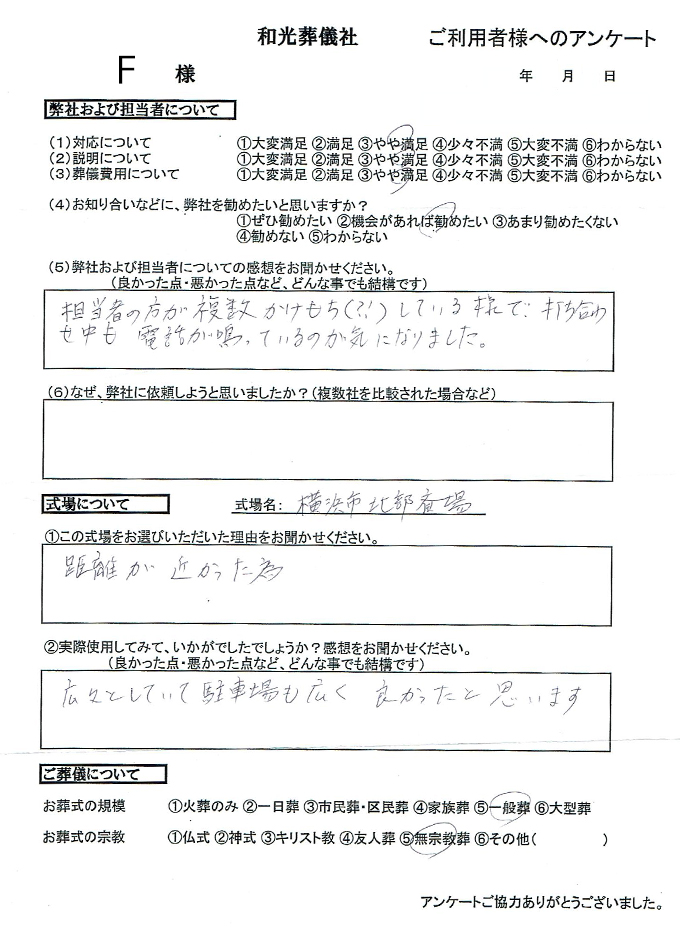 和光葬儀社 ご利用者様へのアンケート
F 様 年 月 日
弊社および担当者について
(1)対応について ①大変満足 ②満足 ③やや満足 ④少々不満 ⑤大変不満 ⑥わからない
(2)説明について ①大変満足 ②満足 ③やや満足 ④少々不満 ⑤大変不満 ⑥わからない
(3)葬儀費用について ①大変満足 ②満足 ③やや満足 ④少々不満 ⑤大変不満 ⑥わからない
(4)お知り合いなどに、弊社を勧めたいと思いますか?
①ぜひ勧めたい ②機会があれば勧めたい ③あまり勧めたくない
④勧めない ⑤わからない
(5)弊社および担当者についての感想をお聞かせください。
(良かった点・悪かった点など、どんな事でも結構です)
担当者の方が複数かけもち(?!)している様で 打ち合わ
せ中も 電話が鳴っているのが気になりました。
(6)なぜ、弊社に依頼しようと思いましたか?(複数社を比較された場合など)
式場について 式場名: 横浜市北部斎場
①この式場をお選びいただいた理由をお聞かせください。
距離が 近かった為
②実際使用してみて、いかがでしたでしょうか?感想をお聞かせください。
(良かった点・悪かった点など、どんな事でも結構です)
広々としていて駐車場も広く 良かったと思います
ご葬儀について
お葬式の規模 ①火葬のみ ②一日葬 ③市民葬・区民葬 ④家族葬 ⑤一般葬 ⑥大型葬
お葬式の宗教 ①仏式 ②神式 ③キリスト教 ④友人葬 ⑤無宗教葬 ⑥その他( )
アンケートご協力ありがとうございました。